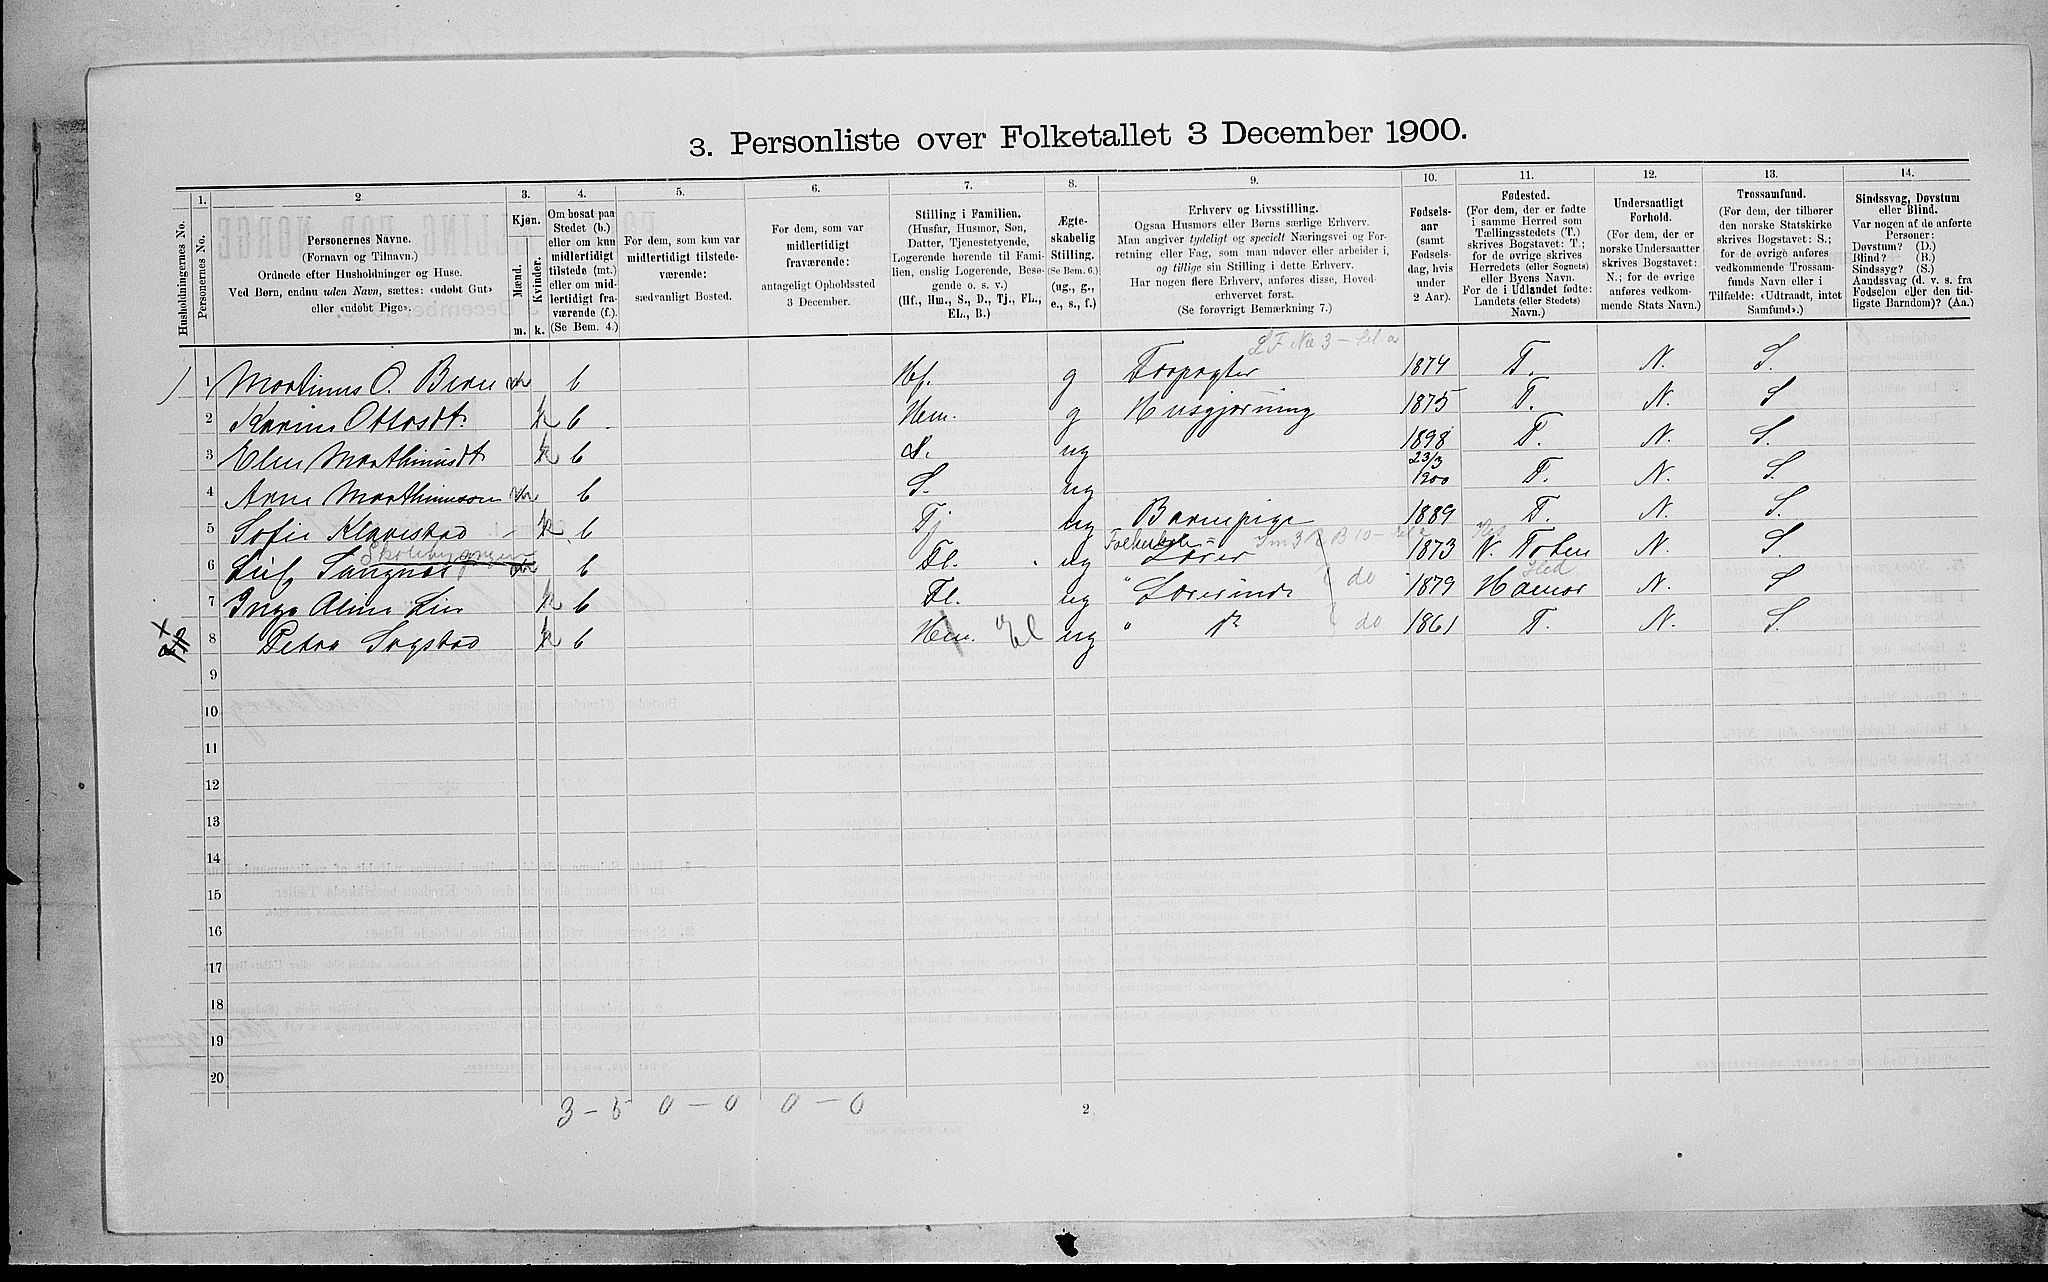 3. Personliste over Folketallet 3 December 1900.
1. 2. 3. 4. 5. 6. 7. 8. 9. 10. 11. 12. 13. 14.
Husholdningernes No.
Personernes No.
Personernes Navne.
(Fornavn og Tilnavn.)
Ordnede efter Husholdninger og Huse.
Ved Børn, endnu uden Navn, sættes: «udøbt Gut»
eller «udøbt Pige».
Kjøn.
Mænd.
Kvinder.
m. k.
Om bosat paa
Stedet (b.)
eller om kun
midlertidigt
tilstede (mt.)
eller om mid-
lertidigt fra-
værende (f.)
(Se Bem. 4.)
For dem, som kun var
midlertidigt tilstede-
værende:
sædvanligt Bosted.
For dem, som var
midlertidigt
fraværende:
antageligt Opholdssted
3 December.
Stilling i Familien.
(Husfar, Husmor, Søn,
Datter, Tjenestetyende,
Logerende hørende til Fami-
lien, enslig Logerende, Besø-
gende o. s. v.)
(Hf., Hm., S., D., Tj., FL.,
EL., B.)
Ægte-
skabelig
Stilling.
(Se Bem. 6.)
(ug., g.,
e., s., f.)
Erhverv og Livsstilling.
Ogsaa Husmors eller Børns særlige Erhverv.
Man angiver tydeligt og specielt Næringsvei og For-
retning eller Fag, som man udøver eller arbeider i,
og tillige sin Stilling i dette Erhverv.
Har nogen flere Erhverv, anføres disse, Hoved-
erhvervet først.
(Se forøvrigt Bemærkning 7.)
Fødsels-
aar
(samt
Fødsels-
dag, hvis
under
2 Aar).
Fødested.
(For dem, der er fødte
i samme Herred som
Tællingsstedets (T.)
skrives Bogstavet: T.;
for de øvrige skrives
Herredets (eller Sognets)
eller Byens Navn.
For de i Udlandet fødte:
Landets (eller Stedets)
Navn.)
Undersaatligt
Forhold.
(For dem, der er
norske Undersaatter
skrives Bogstavet:
N.; for de øvrige
anføres vedkom-
mende Stats Navn.)
Trossamfund.
(For dem, der tilhører
den norske Statskirke
skrives Bogstavet: S.;
for de øvrige anføres
vedkommende Trossam-
funds Navn eller i
Tilfælde: «Udtraadt, intet
Samfund».)
Sindssvag, Døvstum
eller Blind.
Var nogen af de anførte
Personer:
Døvstum? (D.)
Blind? (B.)
Sindssyg? (S.)
Aandssvag (d. v. s. fra
Fødselen eller den tid-
ligste Barndom)? (Aa.)
1 Martinus O. Bern m b Hf. g Forpagter 1874 T. N. S.
2 Karine Ottosdt. k b Hm. g Husgjerning 1875 T. N. S
3 Elen Marthinusdt k b D. ug 1898 T. N. S.
4 Arne Marthinussen m b S. ug 23/3 1900 T. N. S.
5 Sofie Klavestad k b Tj ug Barnepige 1889 T. N. S.
6 Leif m b Fl. ug Lærer 1873 N. Toten N. S.
7 Inga Aline Lie k b Fl. ug " Lærerinde do 1879 Hamar N. S
8 Petra Sogstad k b Hm. El ug " do 1861 T. N. S.
9
10
11
12
13
14
15
16
17
18
19
20
3 - 5 0 - 0 0 - 0
2